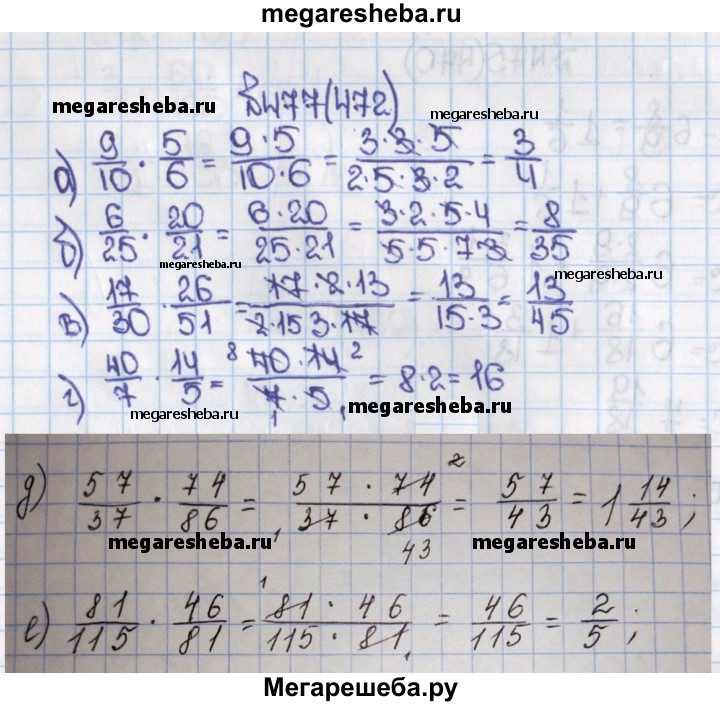 megaresheba.ru
№477(472)
megaresheba.ru megaresheba.ru
а) 9/10 · 5/6 = 9·5/10·6 = 3·3·5/2·5·3·2 = 3/4
б) 6/25 · 20/21 = 6·20/25·21 = 3·2·5·4/5·5·7·3 = 8/35
megaresheba.ru megaresheba.ru
в) 17/30 · 26/51 = 17·2·13/2·15 3·17 = 13/15·3 = 13/45
г) 40/7 · 14/5 = 8 40·14 2/7·5 1 1 = 8·2 = 16
megaresheba.ru megaresheba.ru
д) 57/37 · 74/86 = 57·74 2/1 37·86 43 = 57/43 = 1 14/43;
megaresheba.ru megaresheba.ru
е) 81/115 · 46/81 = 1 81·46/115·81 1 = 46/115 = 2/5;
Мегарешеба.ру